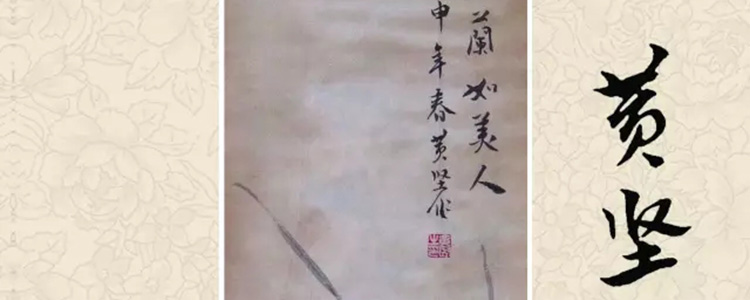 兰如美人
申年春黄坚作
黄坚